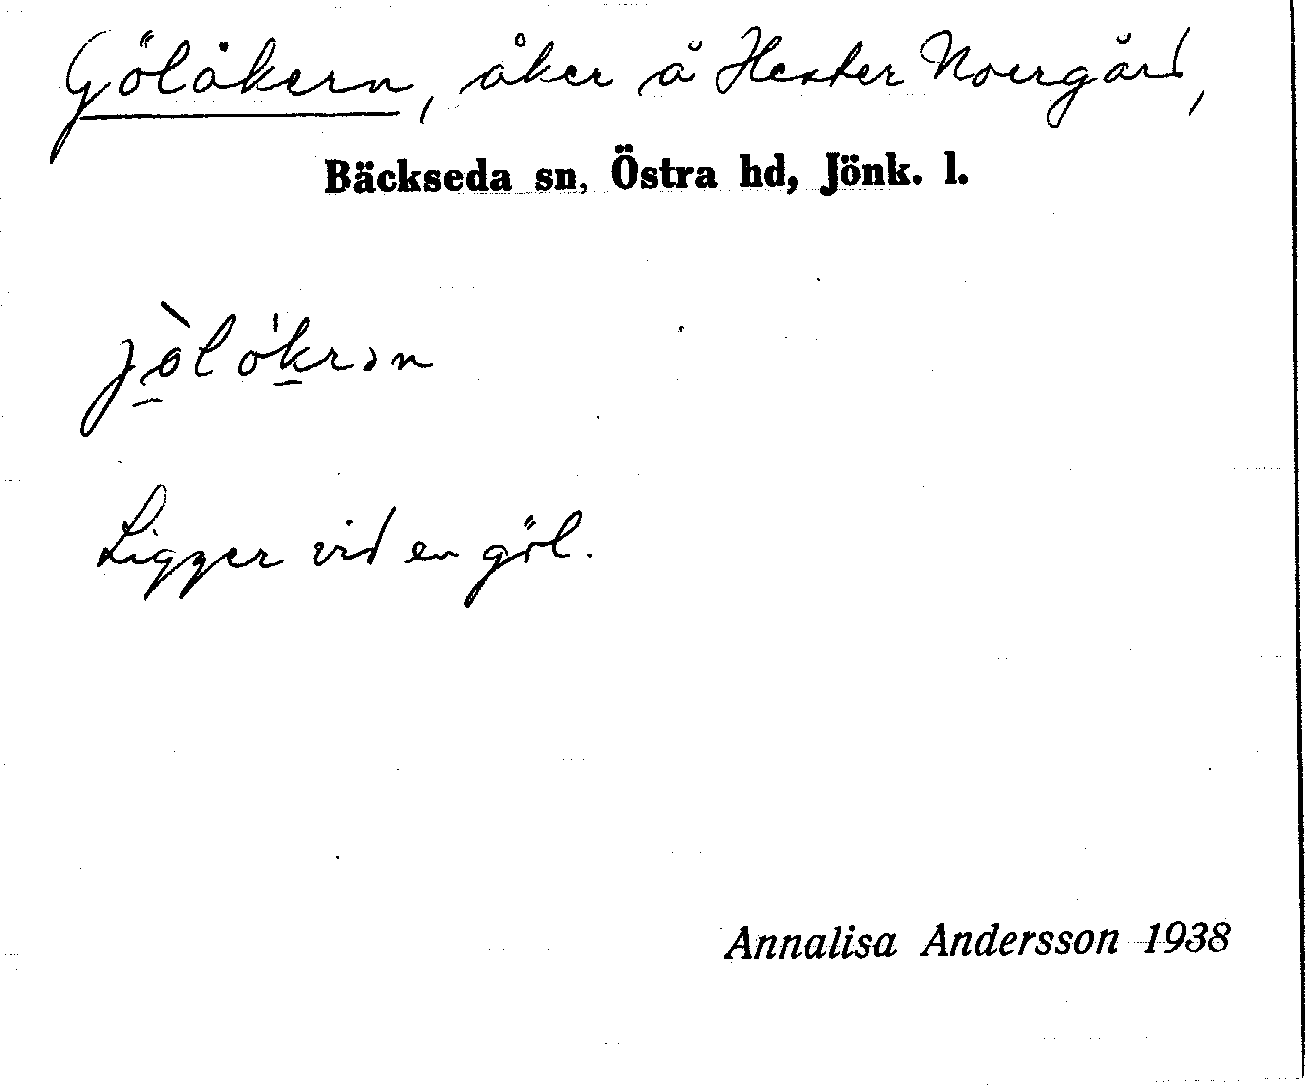 Gölåkern, åker å Hester Norrgård,
Bäckseda sn, Östra hd, Jönk. l.
Ligger vid en göl.
Annalisa Andersson 1938